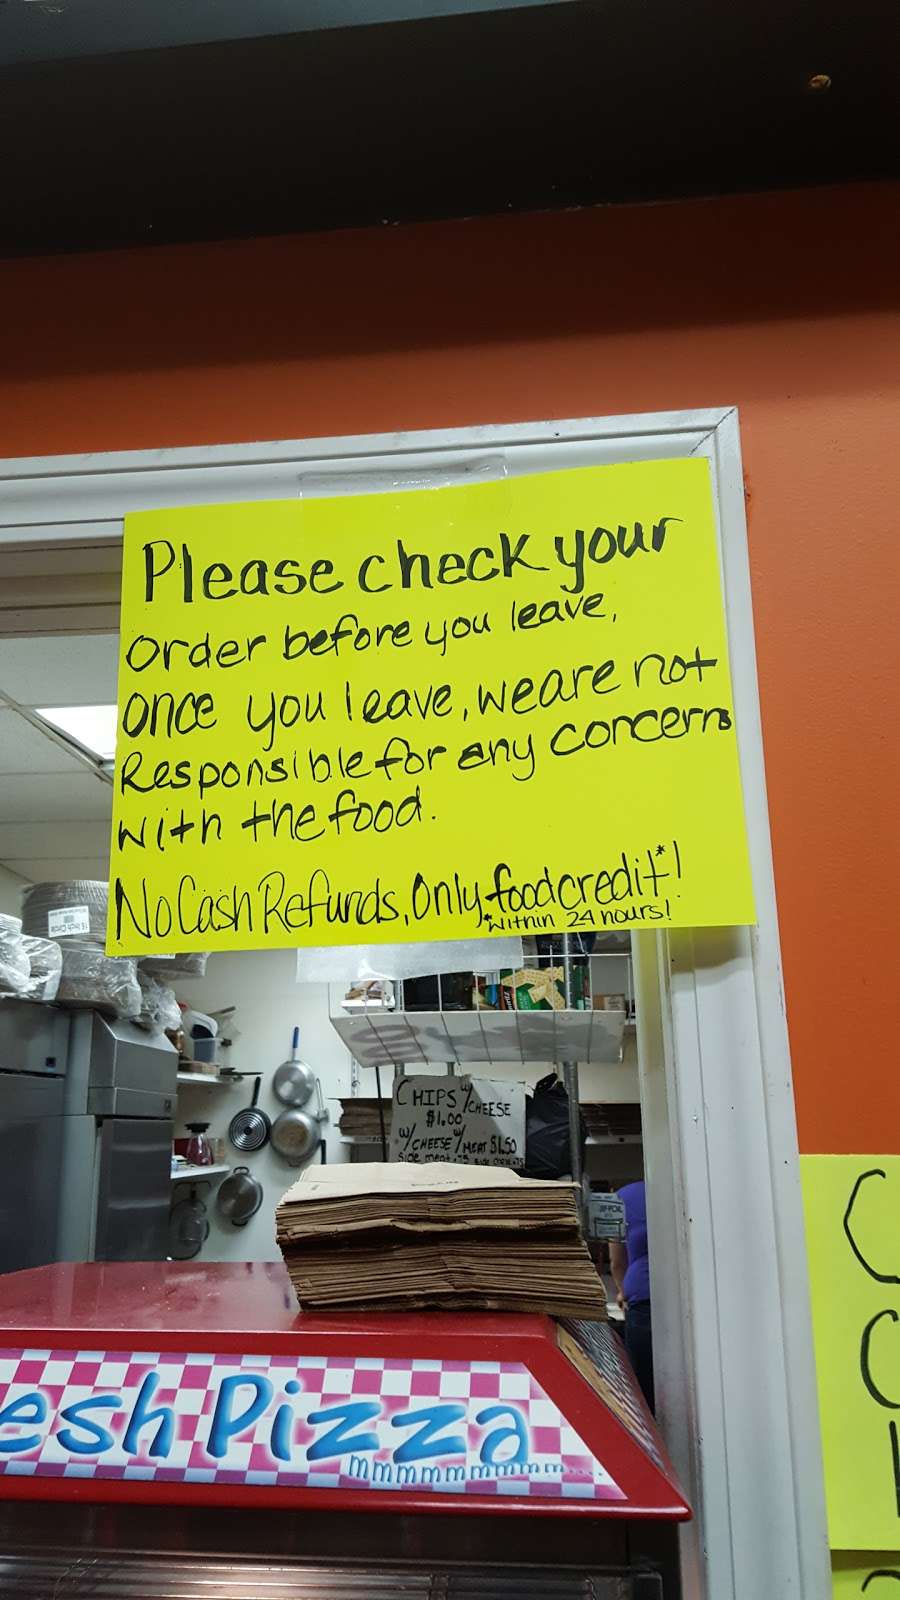 Please check your
Order before you leave,
Once you leave, we are not
Responsible for any concerns
with the food.
No Cash Refunds, Only food credit*!
*within 24 hours!
CHIPS W/CHEESE
$1.00
W/CHEESE W/MEAT $1.50
side meat .75
esh Pizza
mmmmmmmmm....
C
C